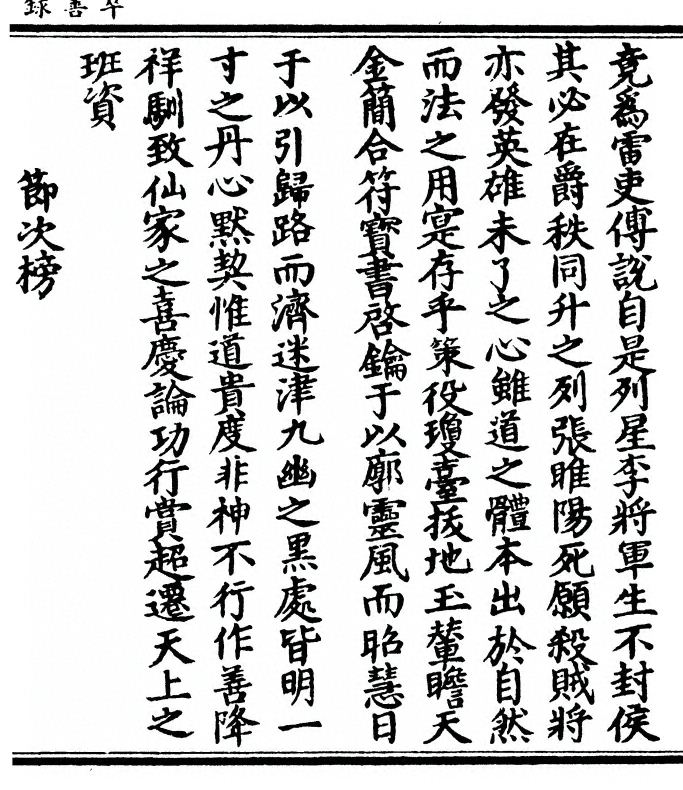 卒善錄
竟為雷吏傅說自是列星李將軍生不封侯
其必在爵秩同升之列張睢陽死願殺賊將
亦發英雄未了之心雖道之體本出於自然
而法之用寔存乎策役瓊臺拔地玉輦瞻天
金簡合符寶書啓鑰于以廓靈風而昭慧日
于以引歸路而濟迷津九幽之黑處皆明一
寸之丹心默契惟道貴度非神不行作善降
祥馴致仙家之喜慶論功行賞超遷天上之
班資
節次榜